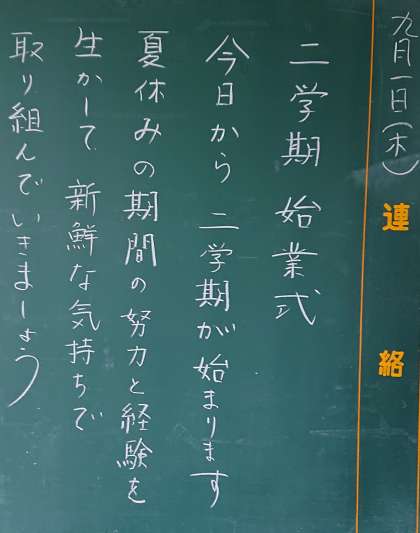 九月一日(木)
連絡
二学期 始業式
今日から 二学期が始まります
夏休みの期間の努力と経験を
生かして 新鮮な気持ちで
取り組んでいきましょう